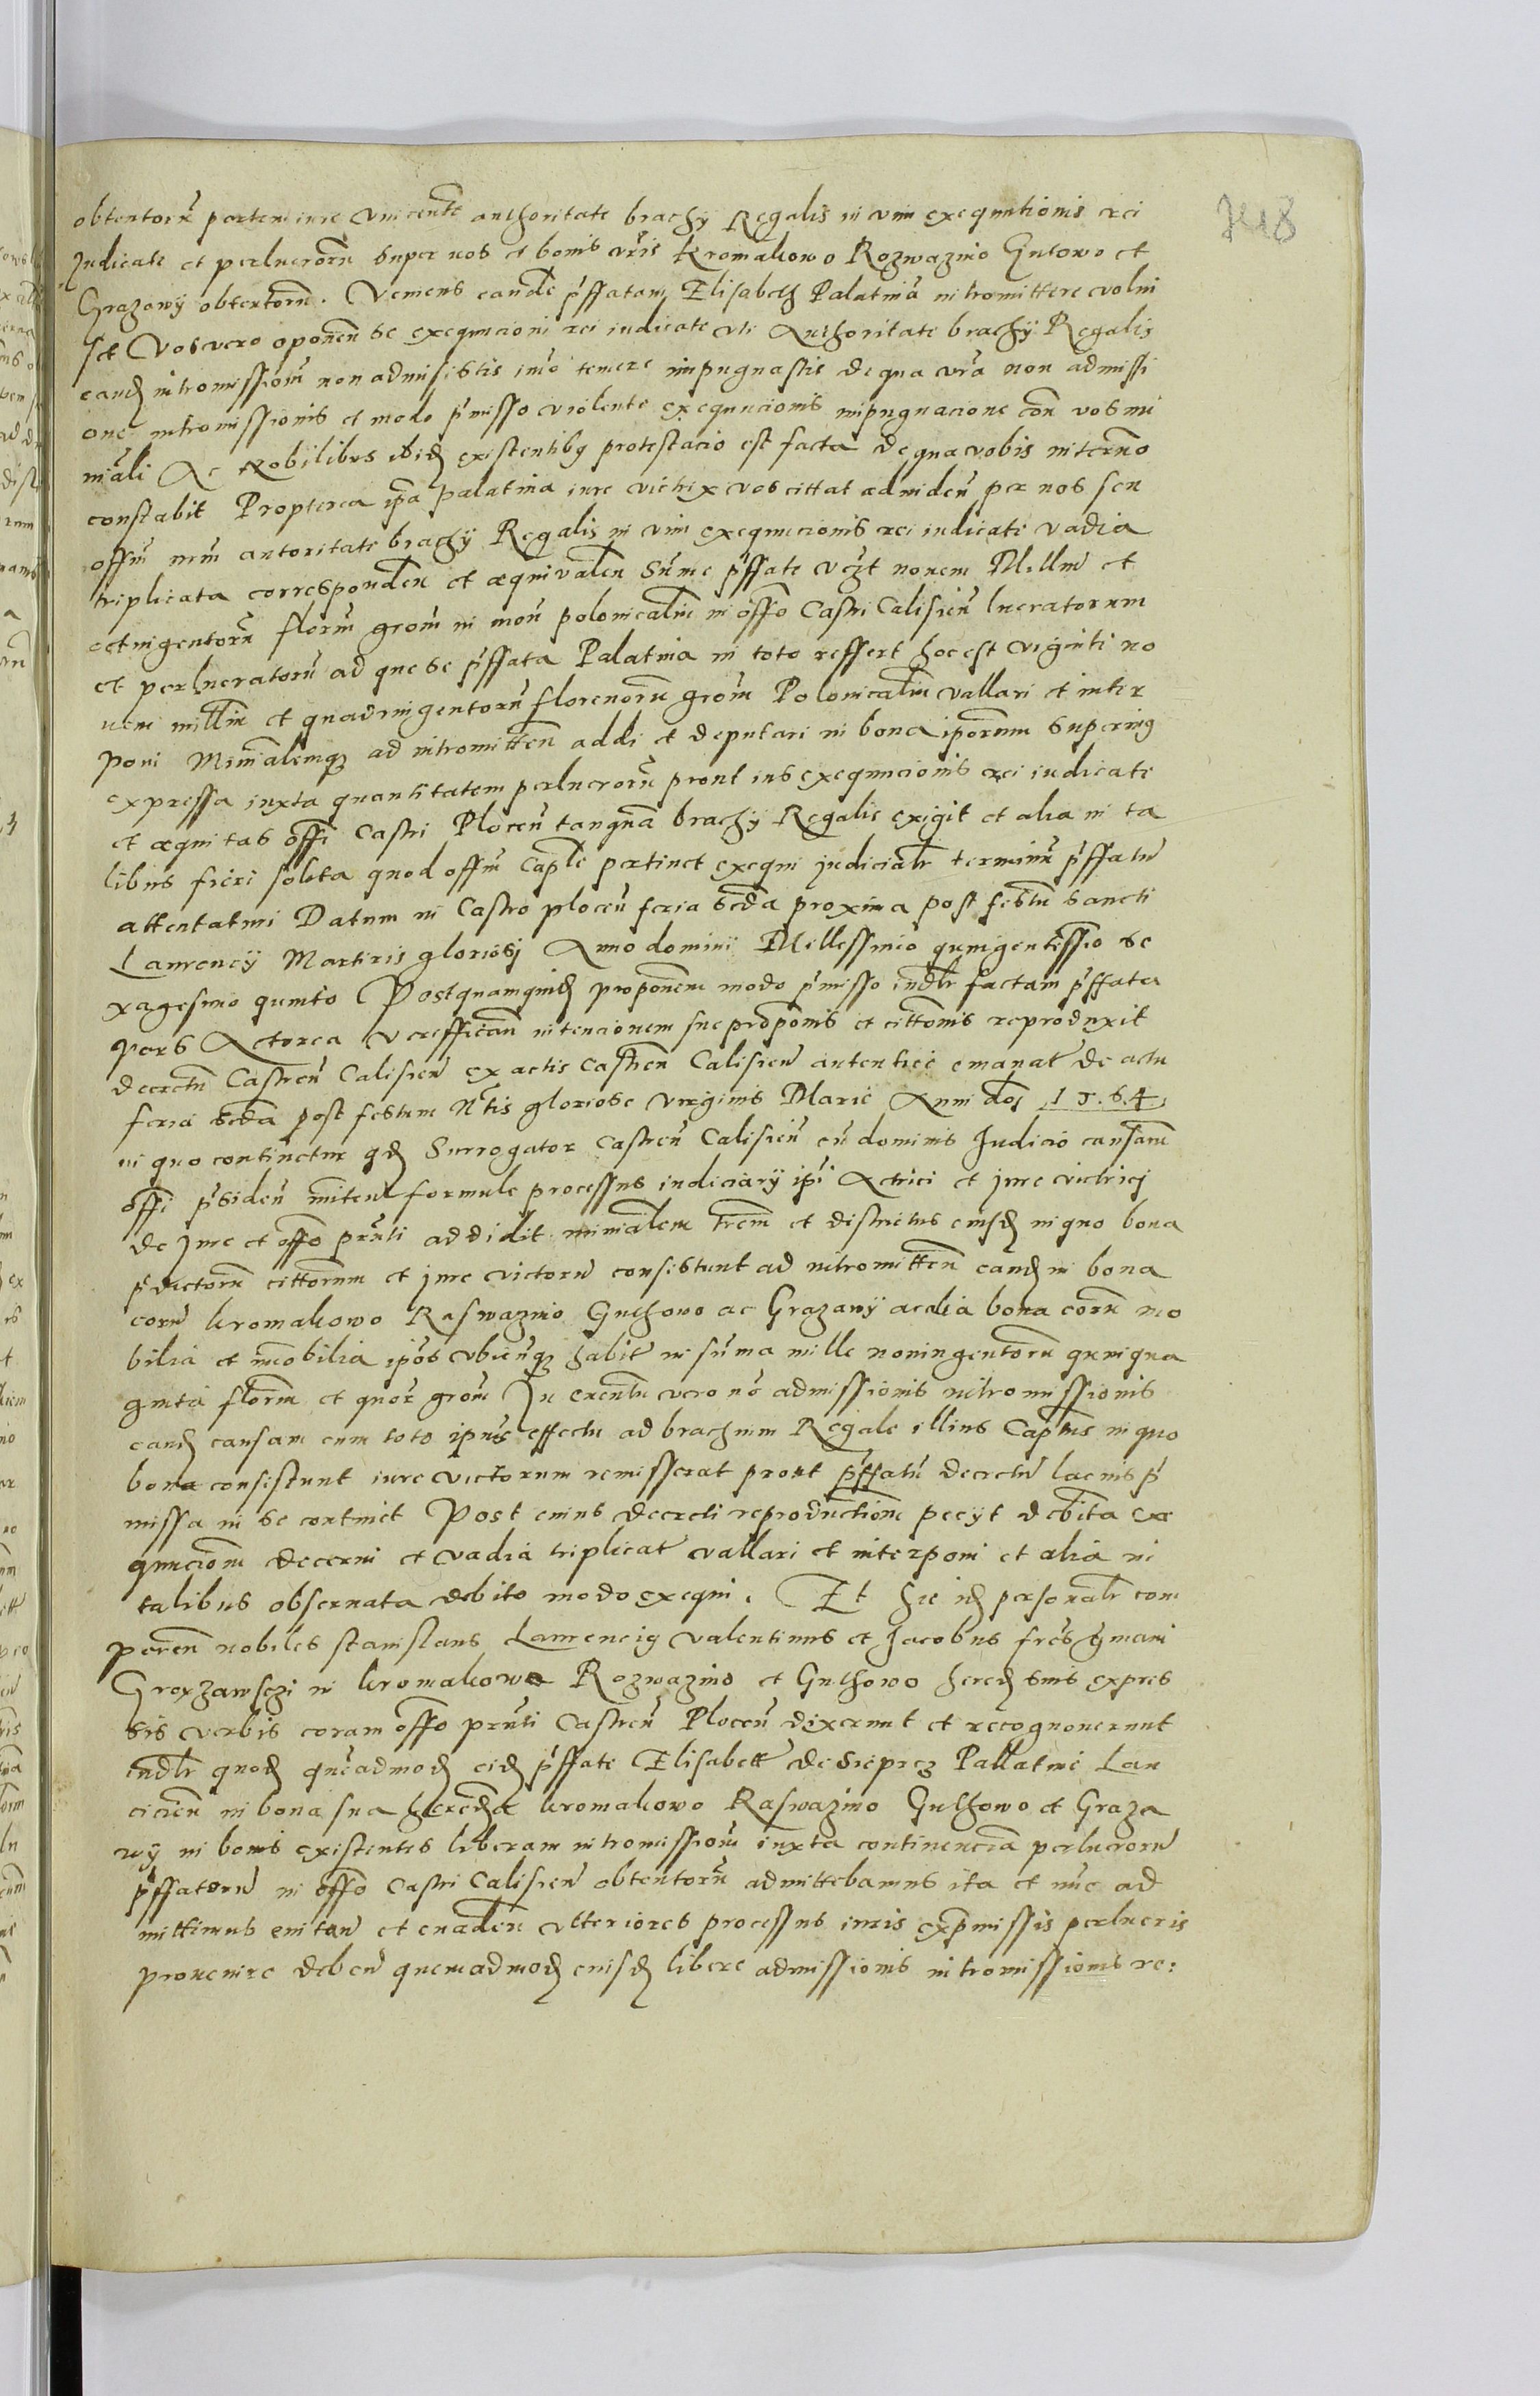 obtentorũ partem iure vincente authoritate brachÿ Regalis in vim exequutionis rei
Judicate et perlucrorũ super vos et bonis vr̃is kromakowo Rozwazino Gutowo et
Grazawÿ obtentorũ. Veniens eandẽ p̃ffatam Elisabeth Palatinã intromittere volui
sset Vos vero oponeñ se exequucioni rei iudicate vti Authoritate brachÿ Regalis
eand intromissionẽ non admisistis imo temere impugnastis de qua vr̃a non admissi
one intromissionis et modo p̃misso violente exequucionis impugnacione coñ vos mi
niali Ac Nobilibus ibid existentibus protestacio est facta de qua vobis in termño
constabit Propterea ip̃a palatina iure victrix vos cittat ad videñ per nos seu
offm̃ nr̃m autoritate brachÿ Regalis in vim exequucionis rei iudicate vadia
triplicata corresponden̄ et aequivalen̄ Sũme p̃ffate vczt novem Millm̃ et
octingentorũ florm̃ grom̃ in mon̄ polonicalm̃ in offo Castri Calisien̄ lucratorum
et perlucratorũ ad que se p̃ffata Palatina in toto reffert hoc est viginti no
vem millm̃ et quadringentorũ florenorũ grom̃ Polonicalm̃ vallari et inter
poni Minialemq ad intromitten̄ addi et deputari in bona ip̃orum superius
expressa iuxta quantitatem perlucrorũ prout ius exequucionis rei iudicate
et aequitas offi Castri Plocen̄ tanquã brachÿ Regalis exigit et alia in ta
libus fieri solita quod offm̃ Caple pertinet exequi judicialr̃ terminũ p̃ffatũ
attentaturi Datum in Castro plocen̄ feria sc̃da proxima post festũ Sancti
Laurencÿ Martiris gloriosj Anno dominÿ Millessimo quingentessio se
xagesimo quinto Postquamquid proponem̃ modo p̃misso iudlr̃ factam p̃ffata
pars Actorea verefficañ intencionem sue propõnis et cittõnis reproduxit
decretũ Castren̄ Calisien̄ ex actis Castren̄ Calisien̄ autentice emanat̃ de actu
feria sc̃da post festum Nt̃is gloriose virginis Marie Anni dõj 1564
in quo continetur qd Surrogator Castren̄ Calisien̄ cũ dominis Judicio causarũ
offi p̃siden̄ niten̄ formule processus iudiciarÿ ip̃i Actrici et jure victricj
de Jure et offo prñti addidit minialem trẽm et districtus eiusd in quo bona
p̃dictorũ cittorum et jure victorũ consistunt ad intromitteñ eand in bona
eorũ kromakowo Raswazino Guthowo ac Grazawÿ ac alia bona eorũ mo
bilia et im̃obilia ip̃os vbicunq habit̃ in sũma mille noningentorũ quinqua
ginta florm̃ et quor̃ grom̃ In eventũ vero no admissionis intromissionis
eand causam cum toto ip̃ius effectu ad brachium Regale illius Captus in quo
bona consistunt iure victorum remisserat prout p̃ffatũ decretũ lacius p̃
missa in se continet Post cuius decreti reproductionẽ pecÿt debita exe
quucionẽ decerni et vadia triplicat̃ vallari et interponi et alia in
talibus obseruata debito modo exequi. Et hic id personalr̃ com
peren̄ nobiles stanislaus Laurencius valentinus et Jacobus frẽs germani
Groxzawsczi in kromakowo Rozwazino et Guthowo hered suis expres
sis verbis coram offo prñti Castren̄ Plocen̄ dixerunt et recognouerunt
iudlr̃ quod quẽadmod eid p̃ffate Elisabett de Sieprcz Pallatine Lan
cicien̄ in bona sua hered̃a kromakowo Raswazino Guthowo et Graza
wÿ in bonis existentes liberam intromissionẽ iuxta continenciã perlucrorũ
p̃ffatorũ in offo Castri Calisien̄ obtentorũ admittebamus ita et nũc ad
mittimus euitan̄ et euaden̄ vlteriores processus iuris exp̃missis perlucris
prouenire deben̄ quemadmod eiusd libere admissionis intromissionis re: